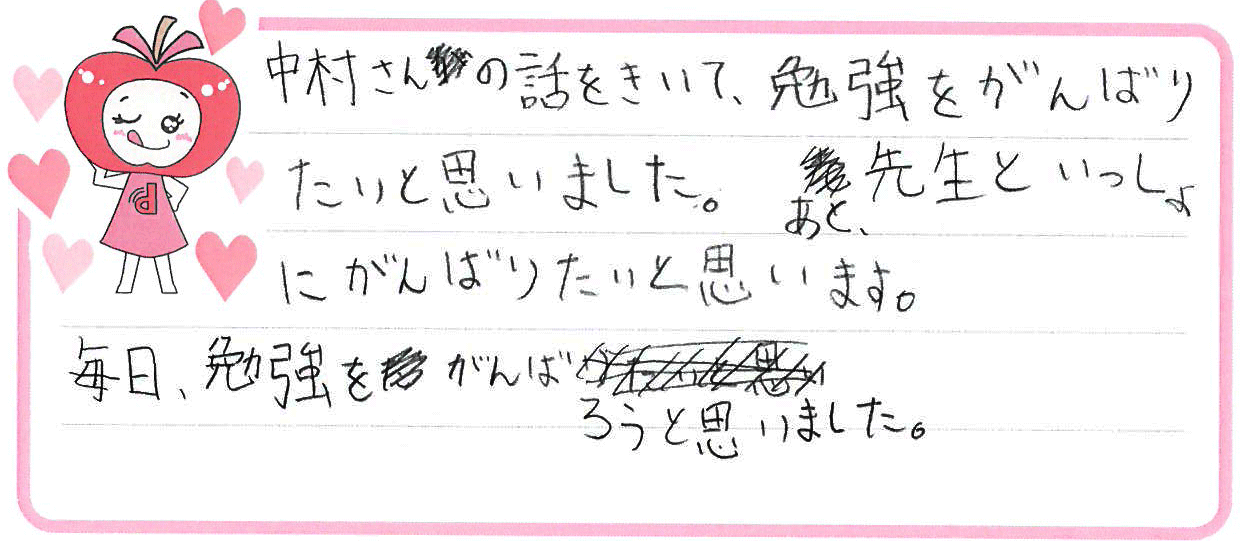 中村さんの話をきいて、勉強をがんばり
たいと思いました。 あと、先生といっしょ
にがんばりたいと思います。
毎日、勉強をがんば
ろうと思いました。
d